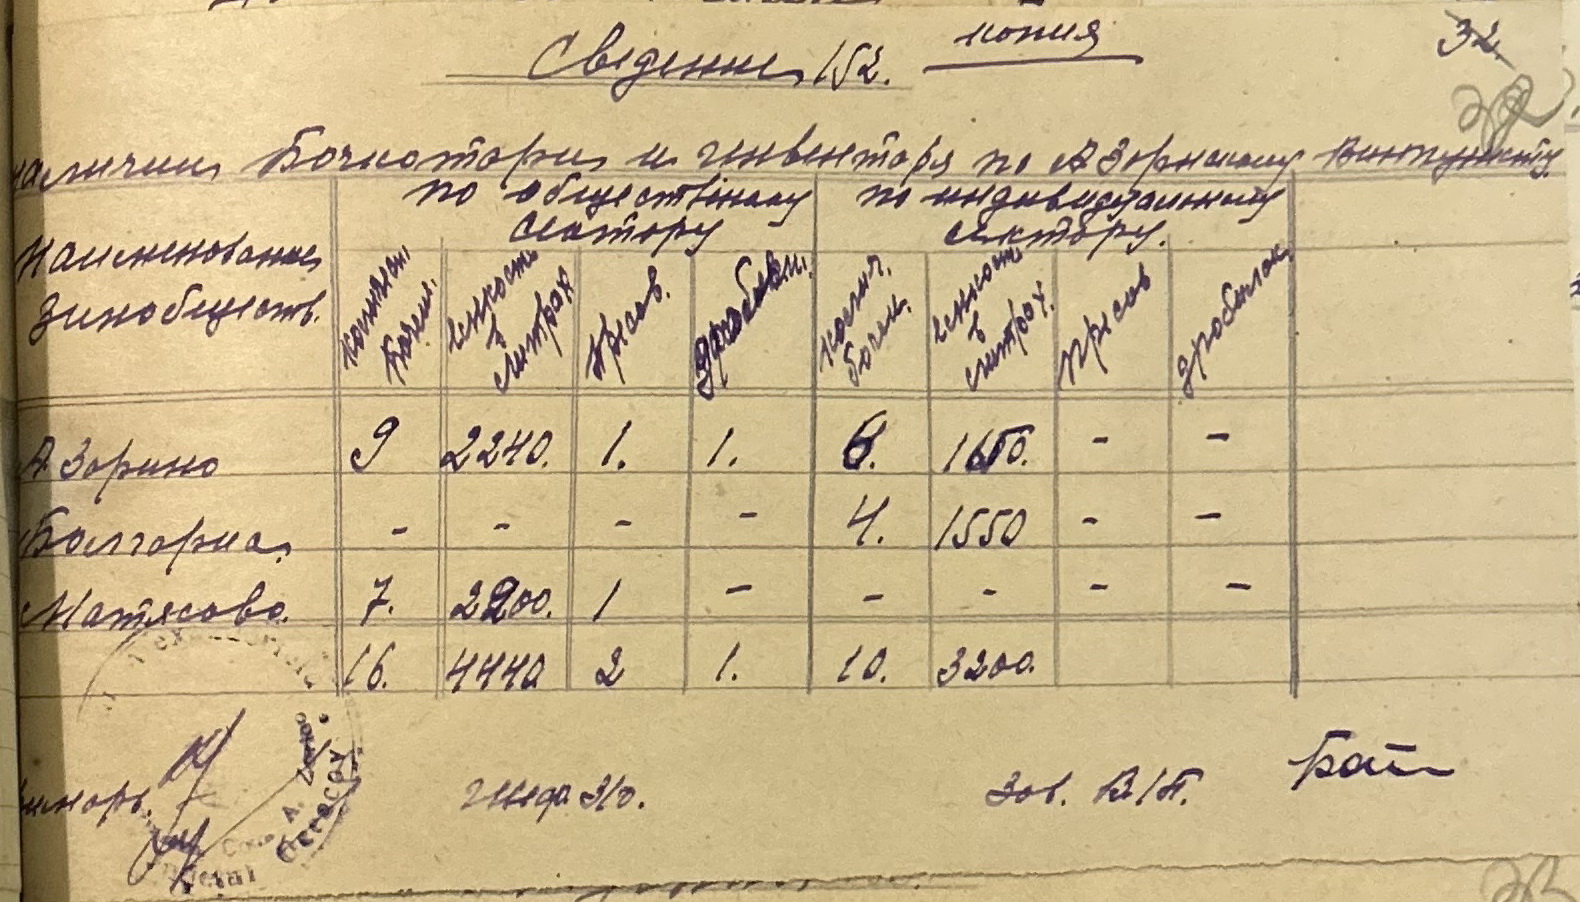 Сведение 152. копия
32
наличии бочкотари и инвентаря по Азоринскому Винпункту
Наименование Винобществ.
по общественому сектору
по индивидуальному сектору.
колич. бочек.
Емкость в литрах
Пресов.
дробилк.
колич. бочек.
Емкость в литрах.
Пресов
дробилок
Азорино 9 2240. 1. 1. 6. 1650. - -
Болгория - - - - 4. 1550 - -
Матясово. 7. 2200. 1 - - - - -
16. 4440 2 1. 10. 3200.
Зав. В/П.